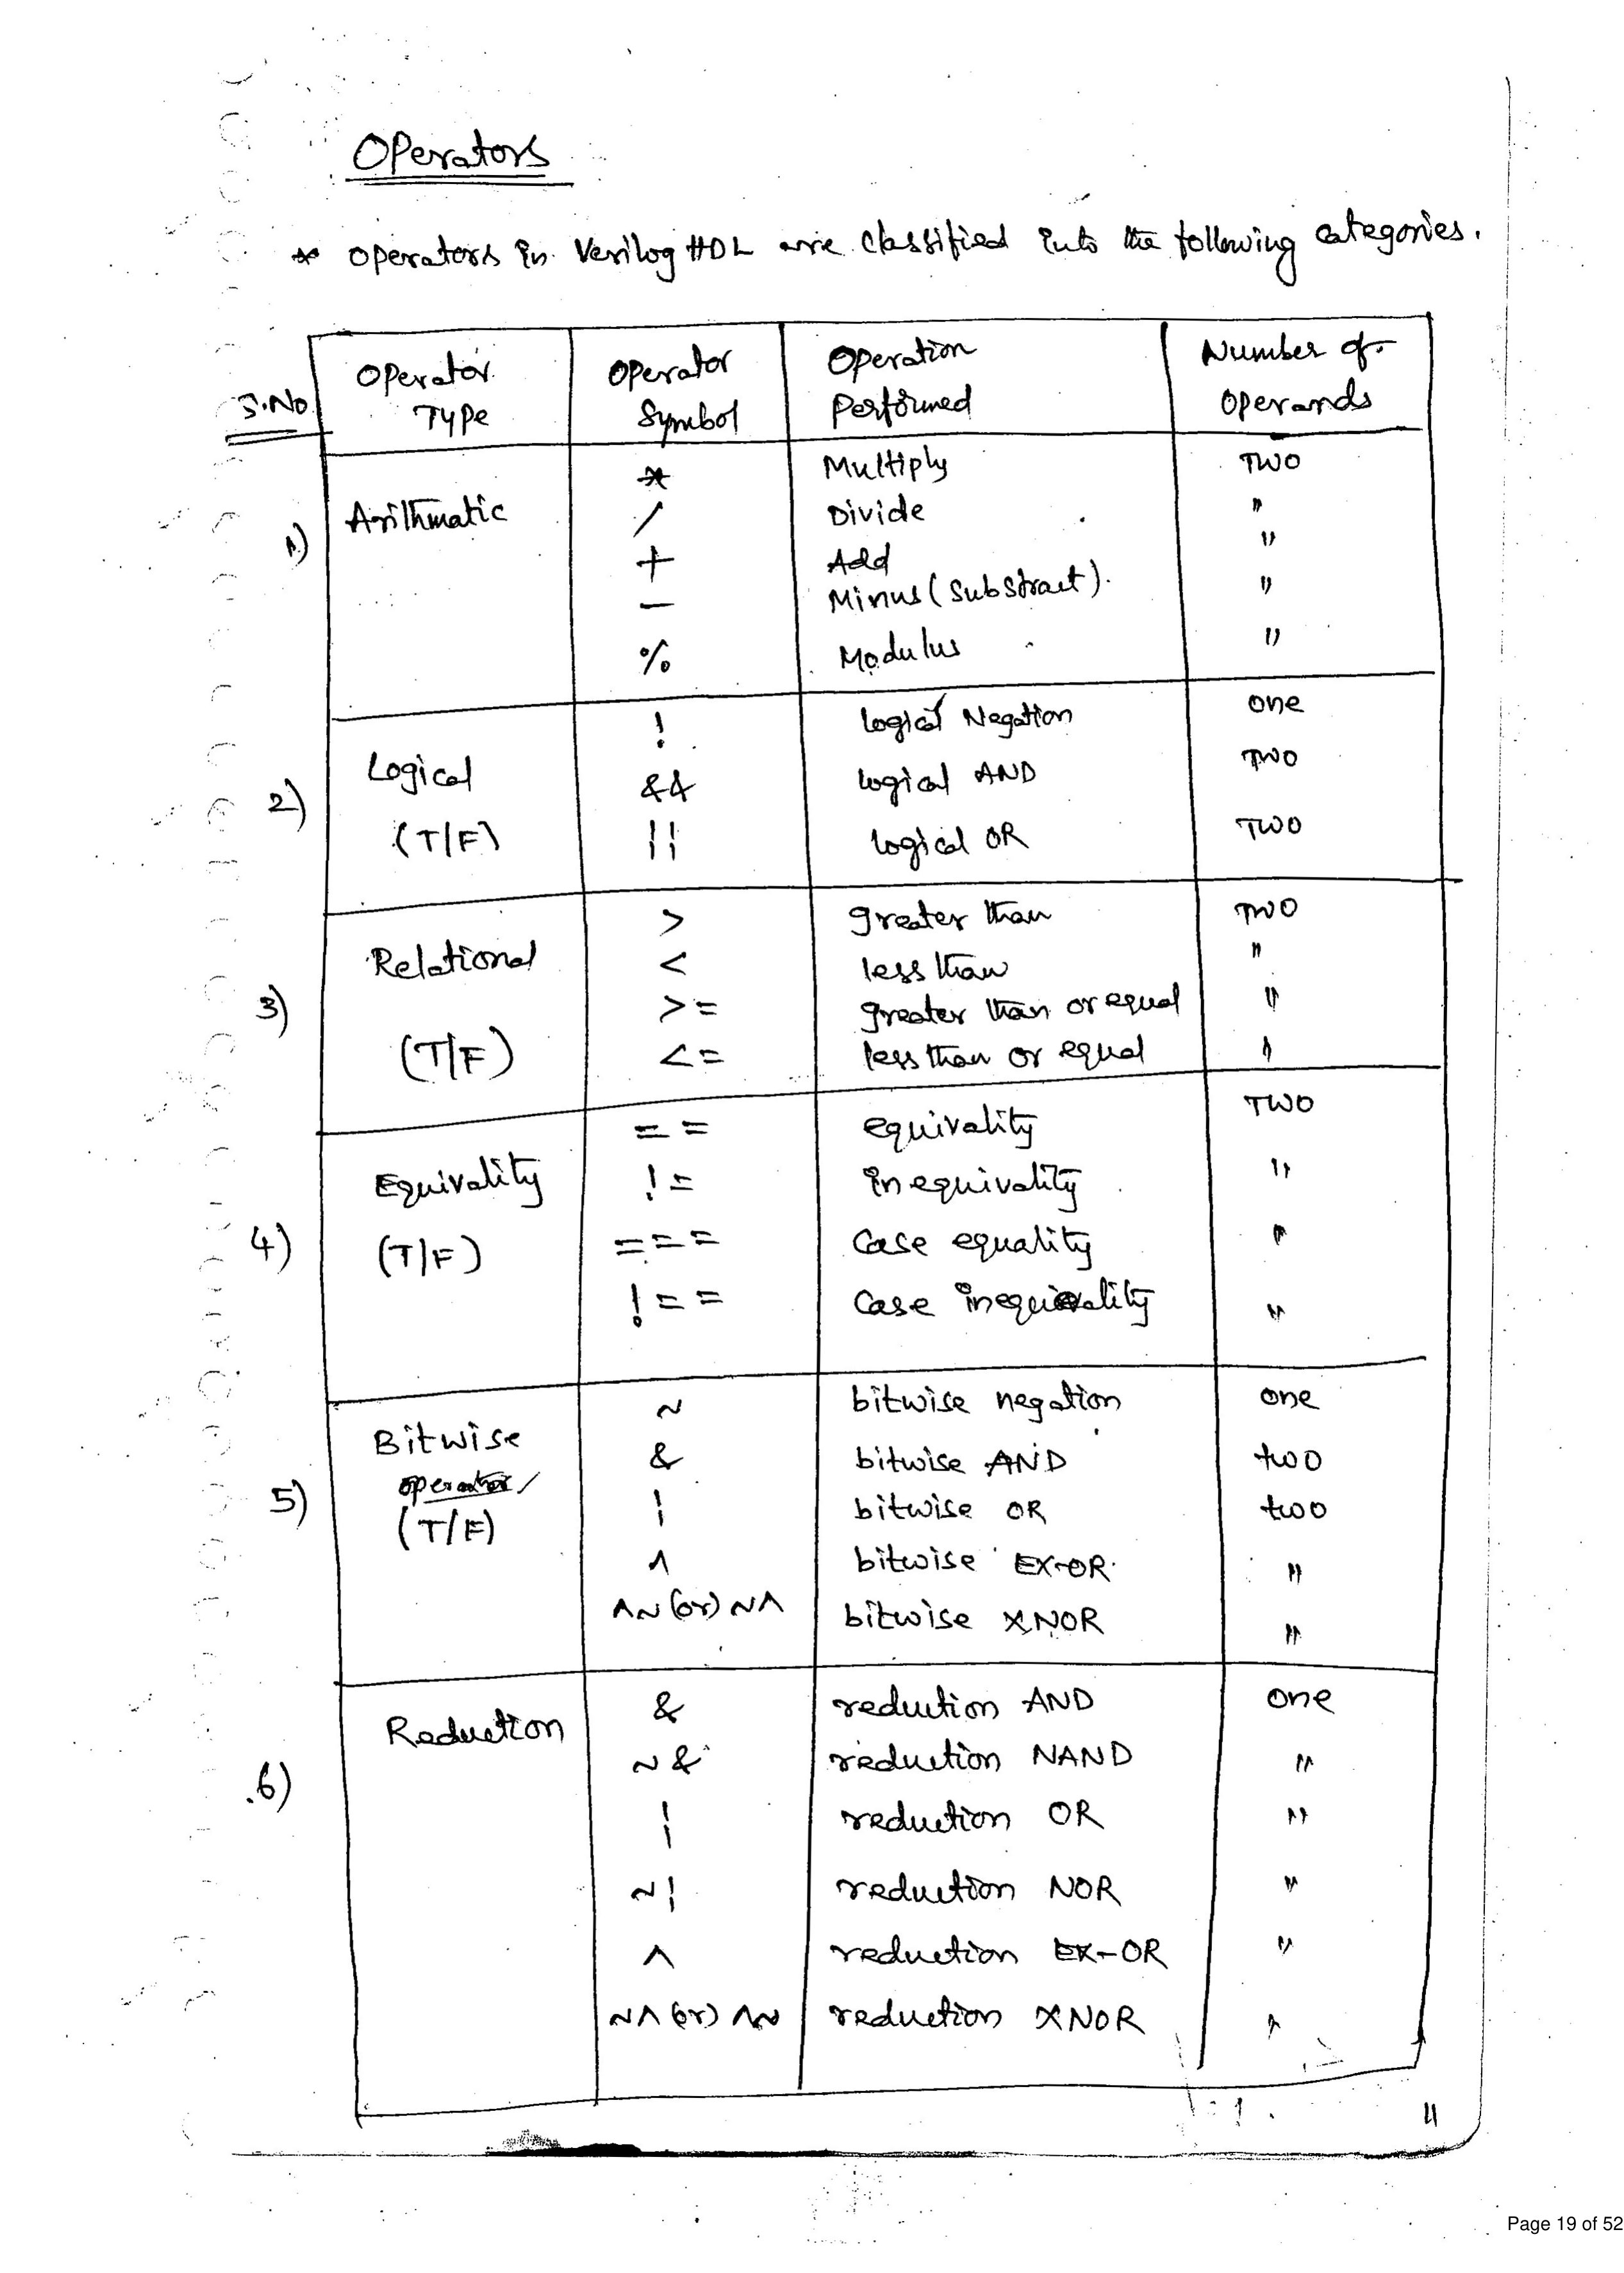 Operators
* operators in Verilog HDL are classified into the following categories.
S.No Operator Type Operator Symbol Operation Performed Number of Operands
1) Arithmatic * Multiply TWO
/ Divide "
+ Add "
- Minus (Substract). "
% Modulus "
2) Logical (T/F) ! logical Negation one
&& logical AND TWO
|| logical OR TWO
3) Relational (T/F) > greater than TWO
< less than "
>= greater than or equal "
<= less than or equal "
4) Equivality (T/F) == equivality TWO
!= inequivality "
=== Case equality "
!== Case inequivality "
5) Bitwise operator (T/F) ~ bitwise negation one
& bitwise AND two
| bitwise OR two
^ bitwise EX-OR "
^~ (or) ~^ bitwise XNOR "
6) Reduction & reduction AND one
~& reduction NAND "
| reduction OR "
~| reduction NOR "
^ reduction EX-OR "
~^ (or) ^~ reduction XNOR "
Page 19 of 52